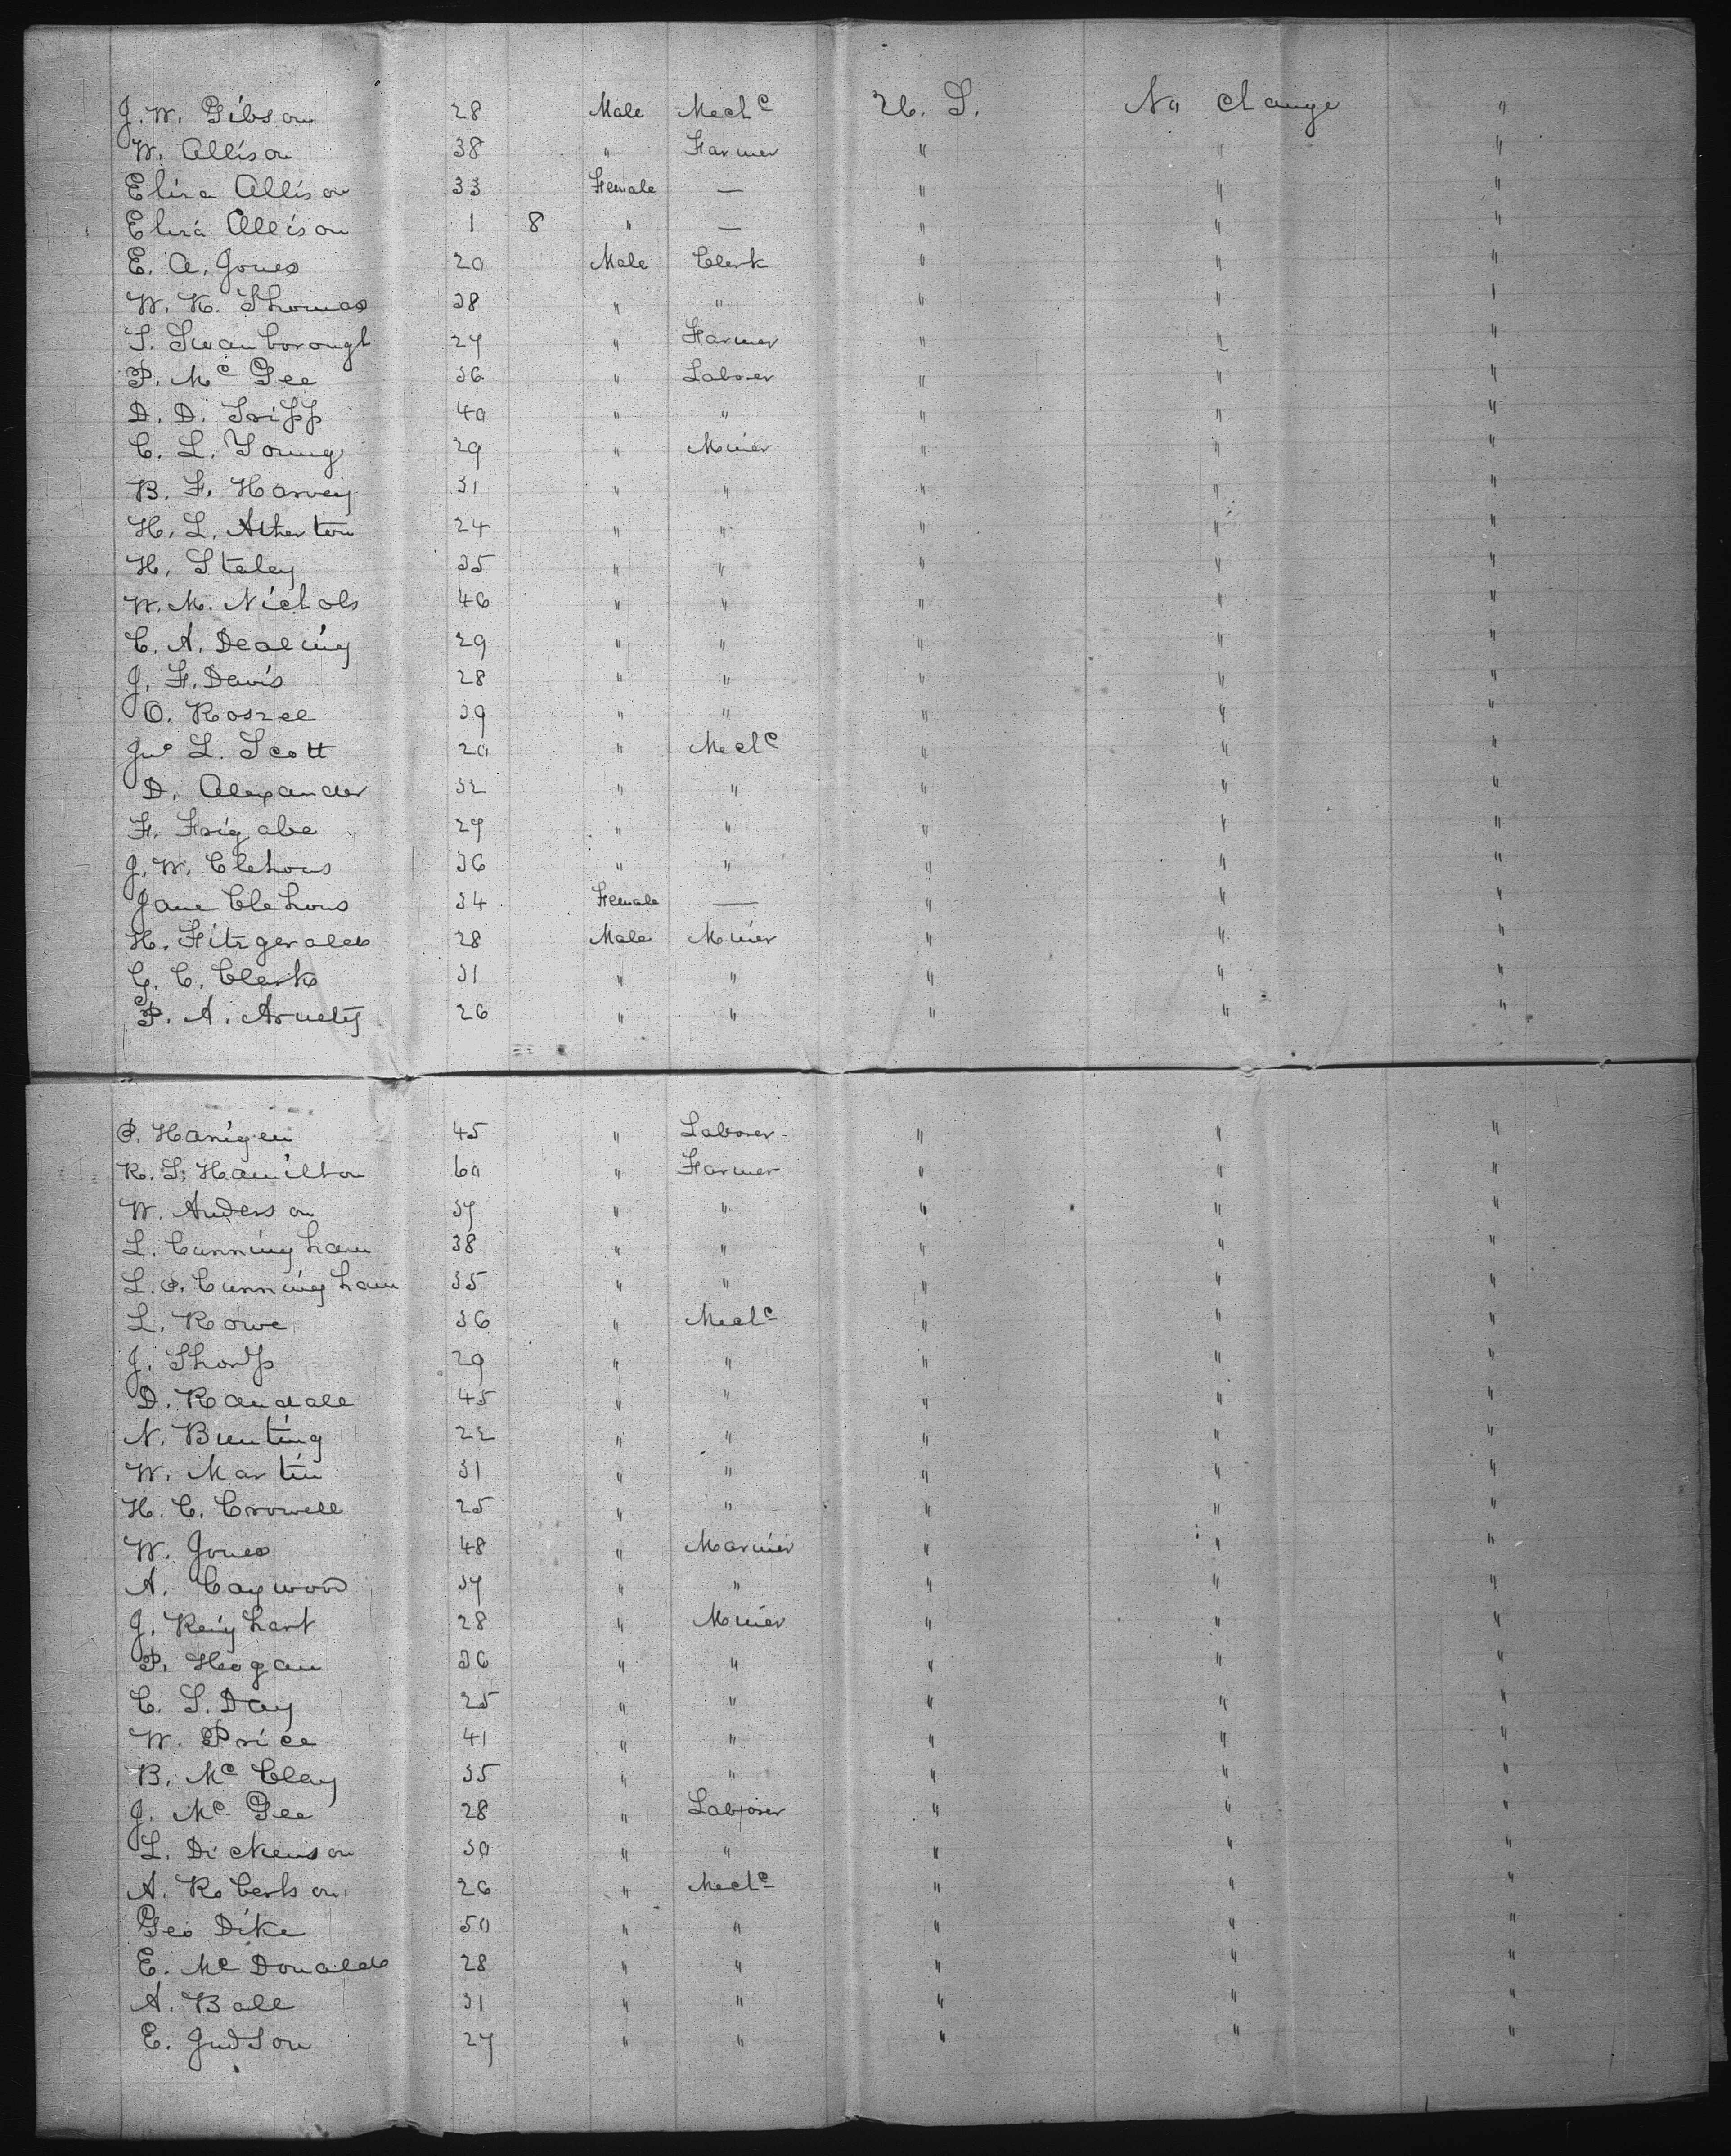 J. W. Gibson 28 Male Mech^c U. S. No change "
W. Allison 38 " Farmer " " "
Eliza Allison 33 Female — " " "
Eliza Allison 1 8 " — " " "
E. A. Jones 20 Male Clerk " " "
W. K. Thomas 38 " " " " "
T. Swanborough 27 " Farmer " " "
P. McGee 36 " Laborer " " "
D. D. Tripp 40 " " " " "
C. L. Young 29 " Miner " " "
B. F. Harvey 31 " " " " "
H. L. Atherton 24 " " " " "
H. Staley 35 " " " " "
W. M. Nichols 46 " " " " "
C. A. Dealing 29 " " " " "
J. F. Davis 28 " " " " "
O. Roszel 39 " " " " "
Jno L. Scott 20 " Mech^c " " "
D. Alexander 32 " " " " "
F. Frigabe 27 " " " " "
J. W. Clehous 36 " " " " "
Jane Clehous 34 Female — " " "
H. Fitzgerald 28 Male Miner " " "
G. C. Clark 31 " " " " "
P. A. 26 " " " " "
P. Hanigen 45 " Laborer " " "
R. S. Hamilton 60 " Farmer " " "
W. Anderson 37 " " " " "
L. Cunningham 38 " " " " "
L. P. Cunningham 35 " " " " "
L. Rowe 36 " Mech^c " " "
J. Thorp 29 " " " " "
D. Randall 45 " " " " "
N. Bunting 22 " " " " "
W. Martin 31 " " " " "
H. C. Crowell 25 " " " " "
W. Jones 48 " Mariner " " "
A. Caywood 37 " " " " "
J. Reinhart 28 " Miner " " "
P. Hogan 36 " " " " "
C. S. Day 25 " " " " "
W. Price 41 " " " " "
B. McClay 35 " " " " "
J. McGee 28 " Laborer " " "
L. Dickenson 30 " " " " "
A. Robertson 26 " Mech^c " " "
Geo Dike 50 " " " " "
E. McDonald 28 " " " " "
A. Ball 31 " " " " "
E. Judson 27 " " " " "